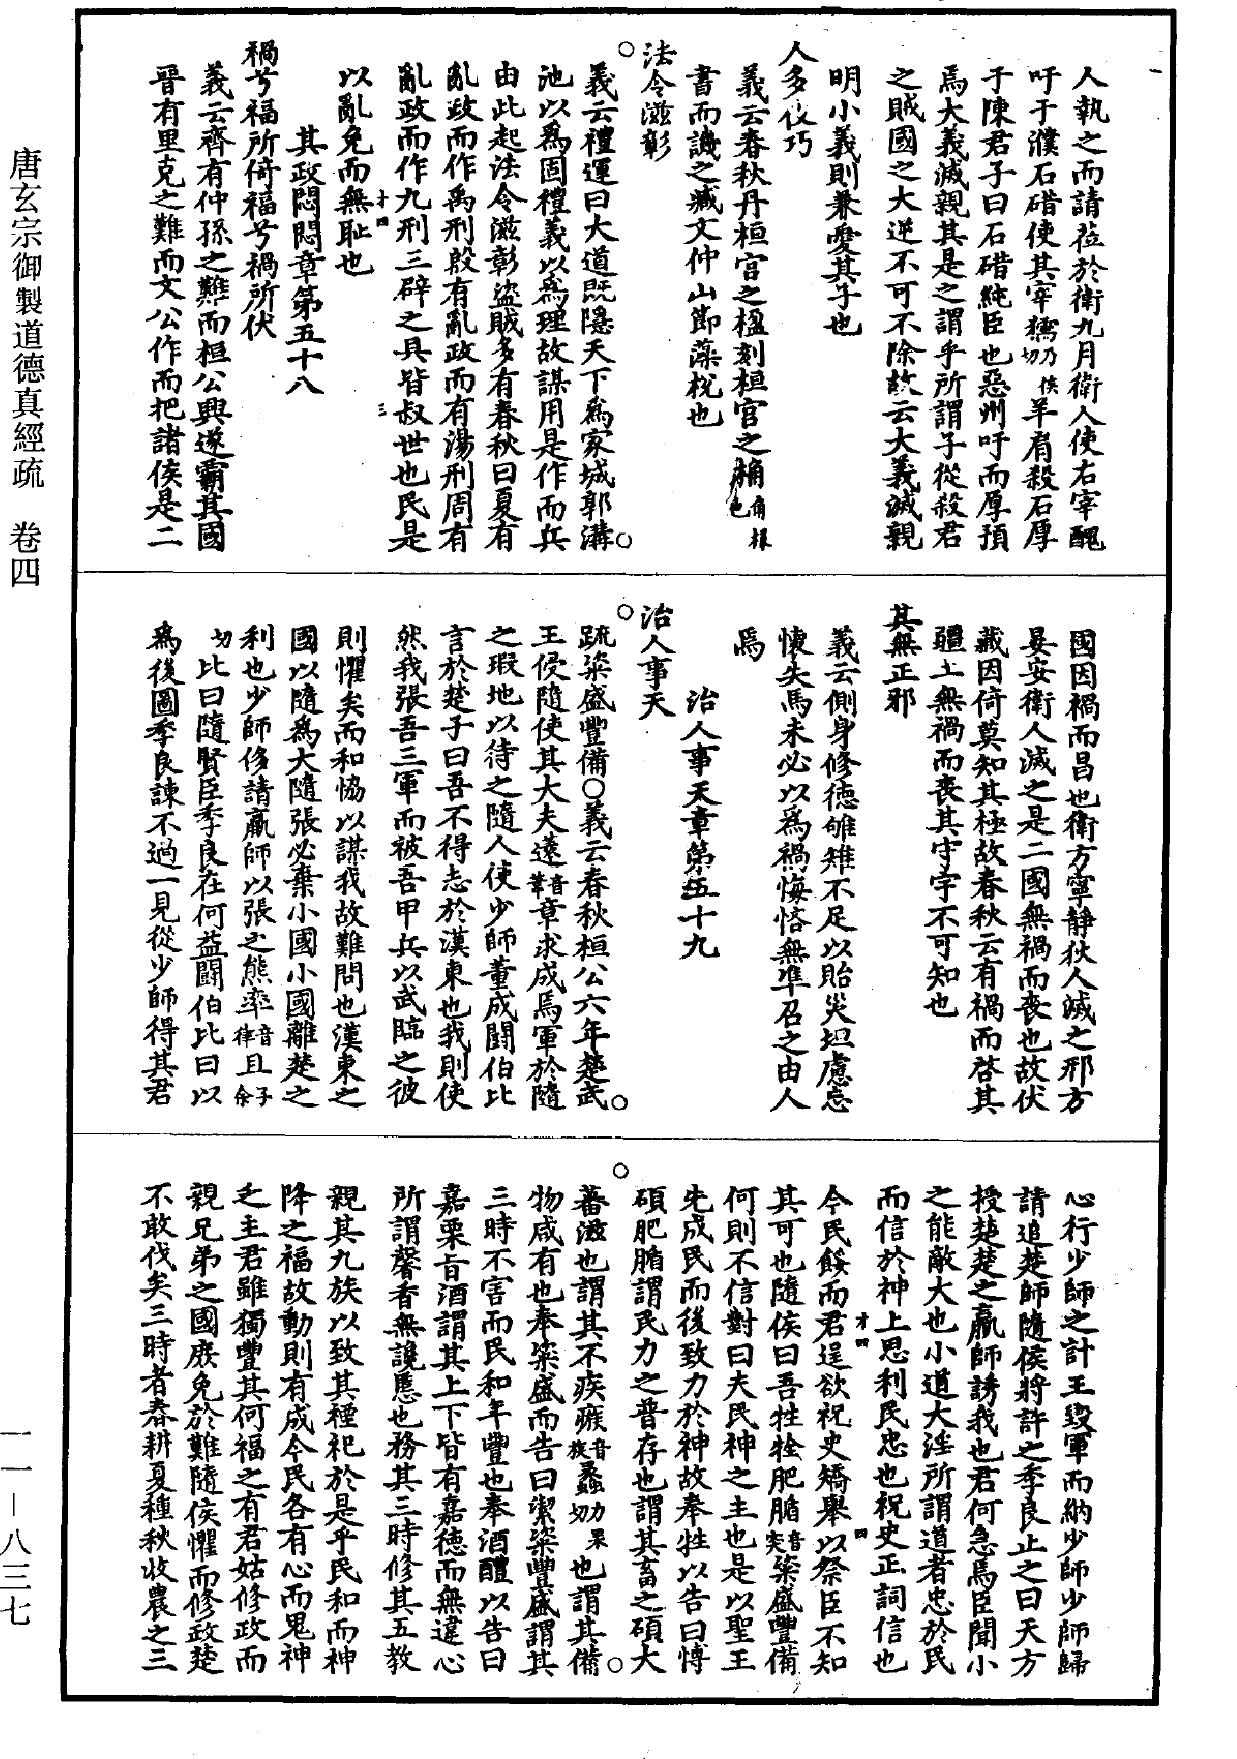 唐玄宗御製道德真經疏　卷四
一一—八三七
人執之而請莅於衛九月衛人使右宰醜
吁于濮石碏使其宰獳乃侯切羊肩殺石厚
于陳君子曰石碏純臣也惡州吁而厚預
焉大義滅親其是之謂乎所謂子從殺君
之賊國之大逆不可不除故云大義滅親
明小義則兼愛其子也
人多伎巧
義云春秋丹桓宮之楹刻桓宮之桷
書而譏之臧文仲山節藻梲也
法令滋彰
義云禮運曰大道既隱天下爲家城郭溝
池以爲固禮義以爲理故謀用是作而兵
由此起法令滋彰盜賊多有春秋曰夏有
亂政而作禹刑殷有亂政而有湯刑周有
亂政而作九刑三辟之具皆叔世也民是
十四　三
以亂免而無恥也
其政悶悶章第五十八
禍兮福所倚福兮禍所伏
義云齊有仲孫之難而桓公興遂霸其國
晉有里克之難而文公作而把諸侯是二
國因禍而昌也衛方寧靜狄人滅之邢方
晏安衛人滅之是二國無禍而喪也故伏
藏因倚莫知其極故春秋云有禍而啓其
疆土無禍而喪其守宇不可知也
其無正邪
義云側身修德雊雉不足以貽災坦慮忘
懷失馬未必以爲禍悔悋無準召之由人
焉
治人事天章第五十九
治人事天
疏粢盛豐備○義云春秋桓公六年楚武
王侵隨使其大夫薳音葦章求成焉軍於隨
之瑕地以待之隨人使少師董成鬪伯比
言於楚子曰吾不得志於漢東也我則使
然我張吾三軍而被吾甲兵以武臨之彼
則懼矣而和協以謀我故難問也漢東之
國以隨爲大隨張必棄小國小國離楚之
利也少師侈請羸師以張之熊率音律且子余
切比曰隨賢臣季良在何益鬪伯比曰以
爲後圖季良諫不過一見從少師得其君
心行少師之計王毀軍而納少師少師歸
請追楚師隨侯將許之季良止之曰天方
授楚楚之羸師誘我也君何急焉臣聞小
之能敵大也小道大淫所謂道者忠於民
而信於神上思利民忠也祝史正詞信也
才四　四
今民餒而君逞欲祝史矯舉以祭臣不知
其可也隨侯曰吾牲牷肥腯音突粢盛豐備
何則不信對曰夫民神之主也是以聖王
先成民而後致力於神故奉牲以告曰博
碩肥腯謂民力之普存也謂其畜之碩大
蕃滋也謂其不疾瘯音族蠡力果切也謂其備
物咸有也奉粢盛而告曰潔粢豐盛謂其
三時不害而民和年豐也奉酒醴以告曰
嘉栗旨酒謂其上下皆有嘉德而無違心
所謂馨香無讒慝也務其三時修其五教
親其九族以致其禋祀於是乎民和而神
降之福故動則有成今民各有心而鬼神
乏主君雖獨豐其何福之有君姑修政而
親兄弟之國庶免於難隨侯懼而修政楚
不敢伐矣三時者春耕夏種秋收農之三